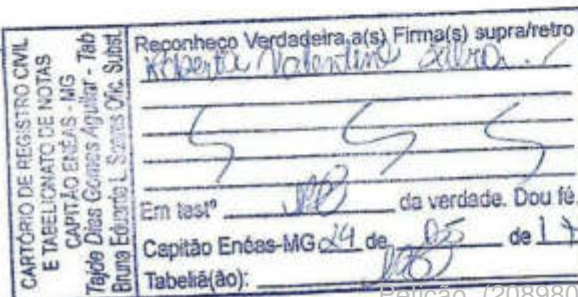 CARTÓRIO DE REGISTRO CIVIL
E TABELIONATO DE NOTAS
CAPITÃO ENÉAS - MG
Tajde Dias Gomes Aguilar - Tab
Bruna Eduarda L. Soares Ofic. Subst.
Reconheço Verdadeira a(s) Firma(s) supra/retro
Roberta Valentine Silva
Em testº da verdade. Dou fé.
Capitão Enéas-MG 24 de 05 de 17
Tabeliã(ão):
Petição (208980